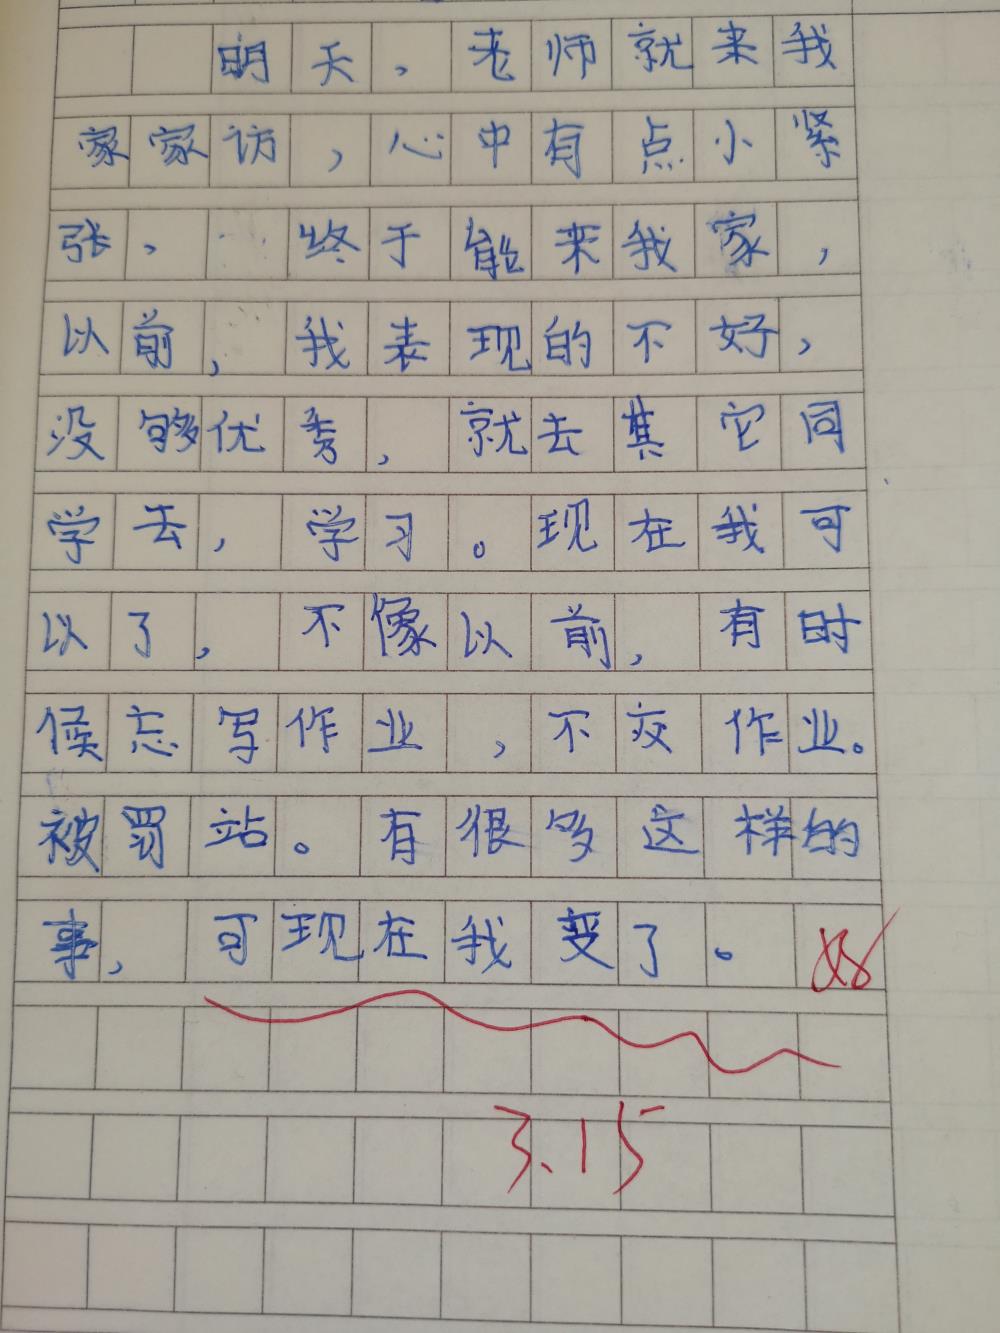 明天，老师就来我
家家访，心中有点小紧
张、终于能来我家，
以前，我表现的不好，
没够优秀，就去其它同
学去，学习。现在我可
以了，不像以前，有时
候忘写作业，不交作业。
被罚站。有很多这样的
事，可现在我变了。
好
3.15